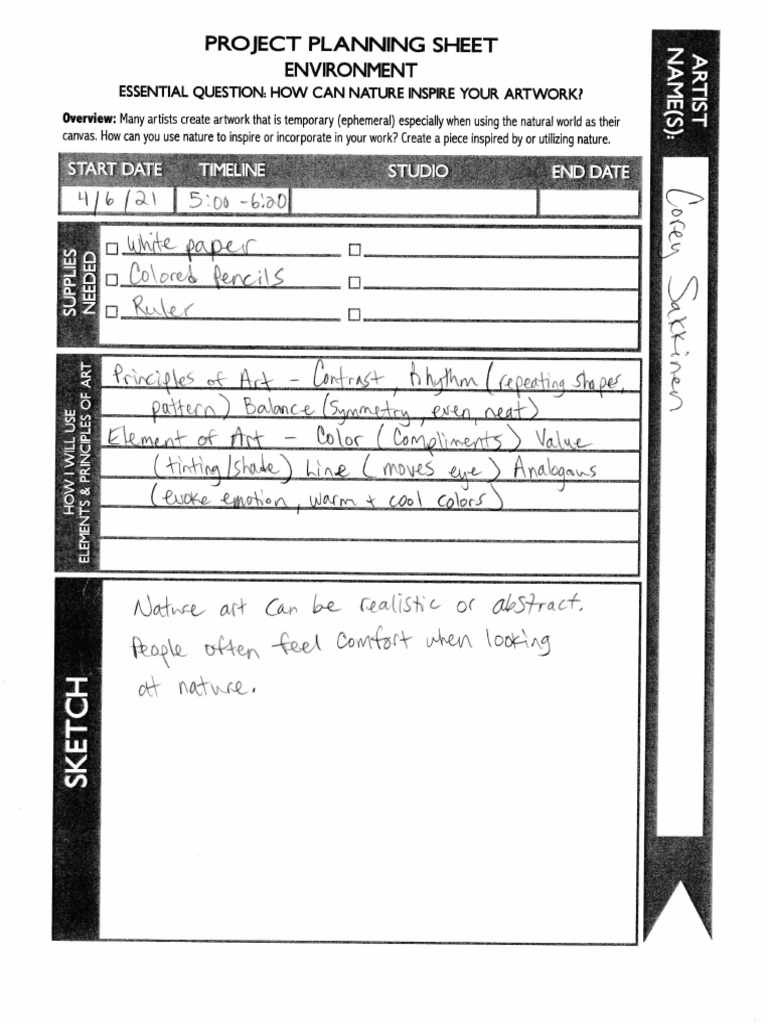 PROJECT PLANNING SHEET
ENVIRONMENT
ESSENTIAL QUESTION: HOW CAN NATURE INSPIRE YOUR ARTWORK?
Overview: Many artists create artwork that is temporary (ephemeral) especially when using the natural world as their
canvas. How can you use nature to inspire or incorporate in your work? Create a piece inspired by or utilizing nature.
START DATE TIMELINE STUDIO END DATE
4/6/21 5:00 - 6:20
SUPPLIES
NEEDED
White paper
Colored Pencils
Ruler
HOW I WILL USE
ELEMENTS & PRINCIPLES OF ART
Principles of Art - Contrast, Rhythm (repeating shapes,
pattern) Balance (Symmetry, even, neat)
Element of Art - Color (Compliments) Value
(tinting/shade) Line (moves eye) Analogous
(evoke emotion, warm + cool colors)
SKETCH
Nature art can be realistic or abstract.
People often feel comfort when looking
at nature.
ARTIST
NAME(S):
Corey Sakkinen